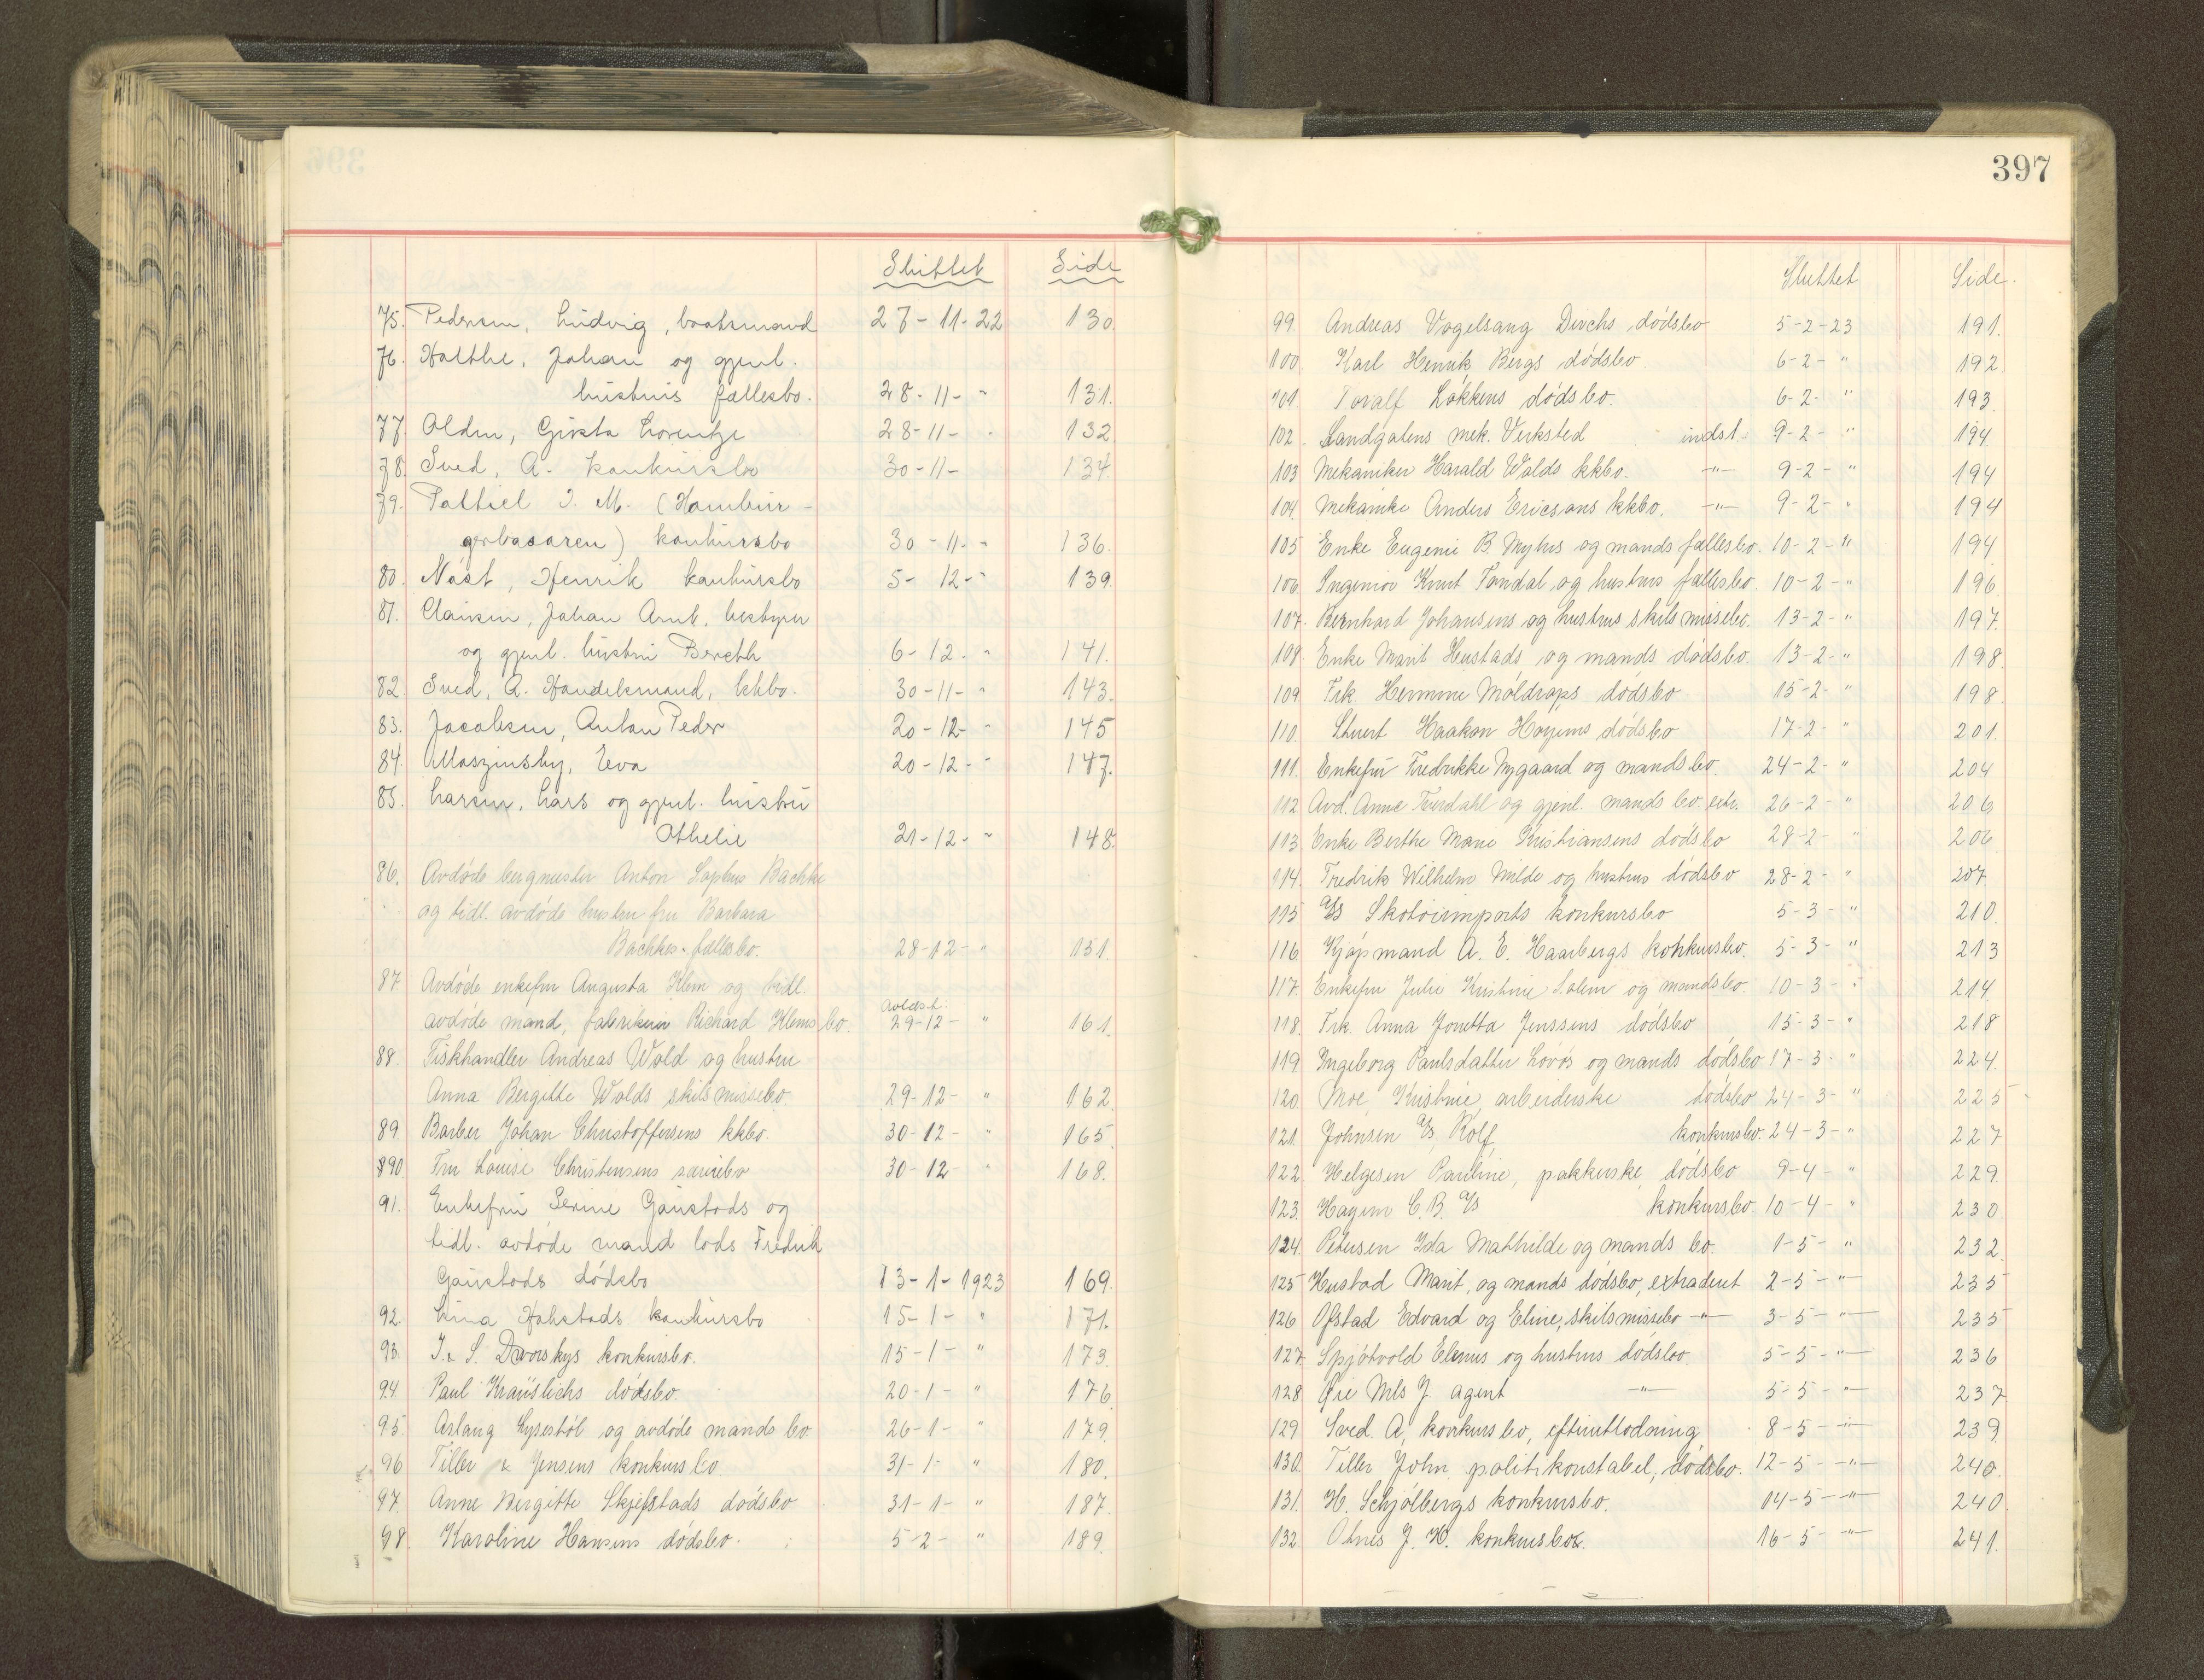 Sluttet Side
75. Pedersen, Ludvig, baatsmand 27-11-22 130.
76. Holthe, Johan og gjenl.
hustrus fællesbo. 28-11- " 131.
77. Olden, Gusta Lorentze 28-11- " 132
78. Sved, A. konkursbo 30-11- 134.
79. Pattiel I. M. (Hambur-
gerbasaren) konkursbo 30-11- " 136.
80. Nøst, Henrik konkursbo 5-12- " 139.
81. Clausen, Johan Arnt, bestyrer
og gjenl. hustru Bereth 6-12- " 141.
82. Sved, A. Handelsmand, kkbo. 30-11- " 143.
83. Jacobsen, Anton Peder 20-12- 145
84. Maszinsky, Eva 20-12- " 147.
85. Larsen, Lars og gjenl. hustru
Othelie 21-12- " 148.
86. Avdøde bergmester Anton Sophus Bachke
og tidl. avdøde hustru fru Barbara
Bachkes fællesbo. 28-12- " 151.
87. Avdøde enkefru Augusta Klem og tidl.
avdøde mand, fabrikeier Richard Klems bo. 29-12- " 161.
88. Fiskhandler Andreas Wold og hustru
Anna Bergitte Wolds skilsmissebo 29-12- " 162.
89. Barber Johan Christoffersens kkbo. 30-12- " 165.
90 Fru Louise Christensens særeiebo 30-12- " 168.
91. Enkefru Serine Gaustads og
tidl. avdøde mand lods Fredrik
Gaustads dødsbo 13-1-1923 169.
92. Lina Hokstads konkursbo 15-1- " 171.
93. I. & S. Dworskys konkursbo. 15-1- " 173.
94. Paul Kräuslichs dødsbo 20-1- " 176.
95. Aslaug Lysestøl og avdøde mands bo 26-1- " 179.
96 Tiller & Jensens konkursbo 31-1- " 180.
97. Anne Bergitte Skjefstads dødsbo 31-1- " 187.
98. Karoline Hansens dødsbo. 5-2- " 189.
397
Sluttet Side.
99. Andreas Vogelsang Dirchs dødsbo 5-2-23 191.
100. Karl Henrik Bergs dødsbo. 6-2- " 192
101 Toralf Løkkens dødsbo. 6-2- " 193.
102. Sandgatens mek. Verksted indst. 9-2- " 194.
103 Mekaniker Harald Wolds kkbo. -"- 9-2- " 194
104. Mekanike Anders Ericsons kkbo. -"- 9-2- " 194
105 Enke Eugenie B. Myhrs og mands fællesbo. 10-2- " 194
106. Ingeniør Knut Tondal og hustrus fællesbo 10-2- " 196.
107. Bernhard Johansens og hustrus skilsmissebo. 13-2- " 197.
108. Enke Marit Hustads og mands dødsbo. 13-2- " 198.
109 Frk. Hermine Møldrops dødsbo 15-2- " 198.
110. Stuert Haakon Hoyems dødsbo 17-2- " 201.
111. Enkefru Fredrikke Nygaard og mands bo. 24-2- " 204
112 Avd. Anne Trerdahl og gjenl. mands bo. extr. 26-2- " 206
113 Enke Berthe Marie Kristiansens dødsbo 28-2- " 206
114. Fredrik Wilhelm Milde og hustrus dødsbo 28-2- " 207.
115 A/S Skotøiimports konkursbo 5-3- " 210.
116 Kjøpmand A. E. Haarbergs konkursbo. 5-3- " 213
117. Enkefru Julie Kristine Solem og mandsbo. 10-3- " 214.
118. Frk. Anna Jonetta Jenssens dødsbo 15-3- " 218
119 Ingeborg Paulsdatter Lovøs og mands dødsbo 17-3- " 224.
120. Moe, Kristine, arbeiderske dødsbo 24-3- " 225
121. Johnsen A/S, Rolf konkursbo. 24-3- " 227
122. Helgesen Pauline, pakkerske, dødsbo 9-4- " 229.
123. Hagem C. B. A/S konkursbo. 10-4- " 230
124. Petersen Ida Mathilde og mands bo. 1-5- " 232.
125 Hustad Marit, og mands dødsbo, extradert 2-5-"- 235
126 Ofstad Edvard og Eline, skilsmissebo -"- 3-5-"- 235
127. Spjøtvold Elenus og hustrus dødsbo 5-5-"- 236
128. Øie Nils J. agent -"- 5-5-"- 237
129 Sved. A, konkursbo, efterutlodning 8-5-"- 239.
130. Tiller John politikonstabel, dødsbo. 12-5-"- 240.
131. H. Schjølbergs konkursbo. 14-5-"- 240.
132. Otnes J. H. konkursbo. 16-5-"- 241.